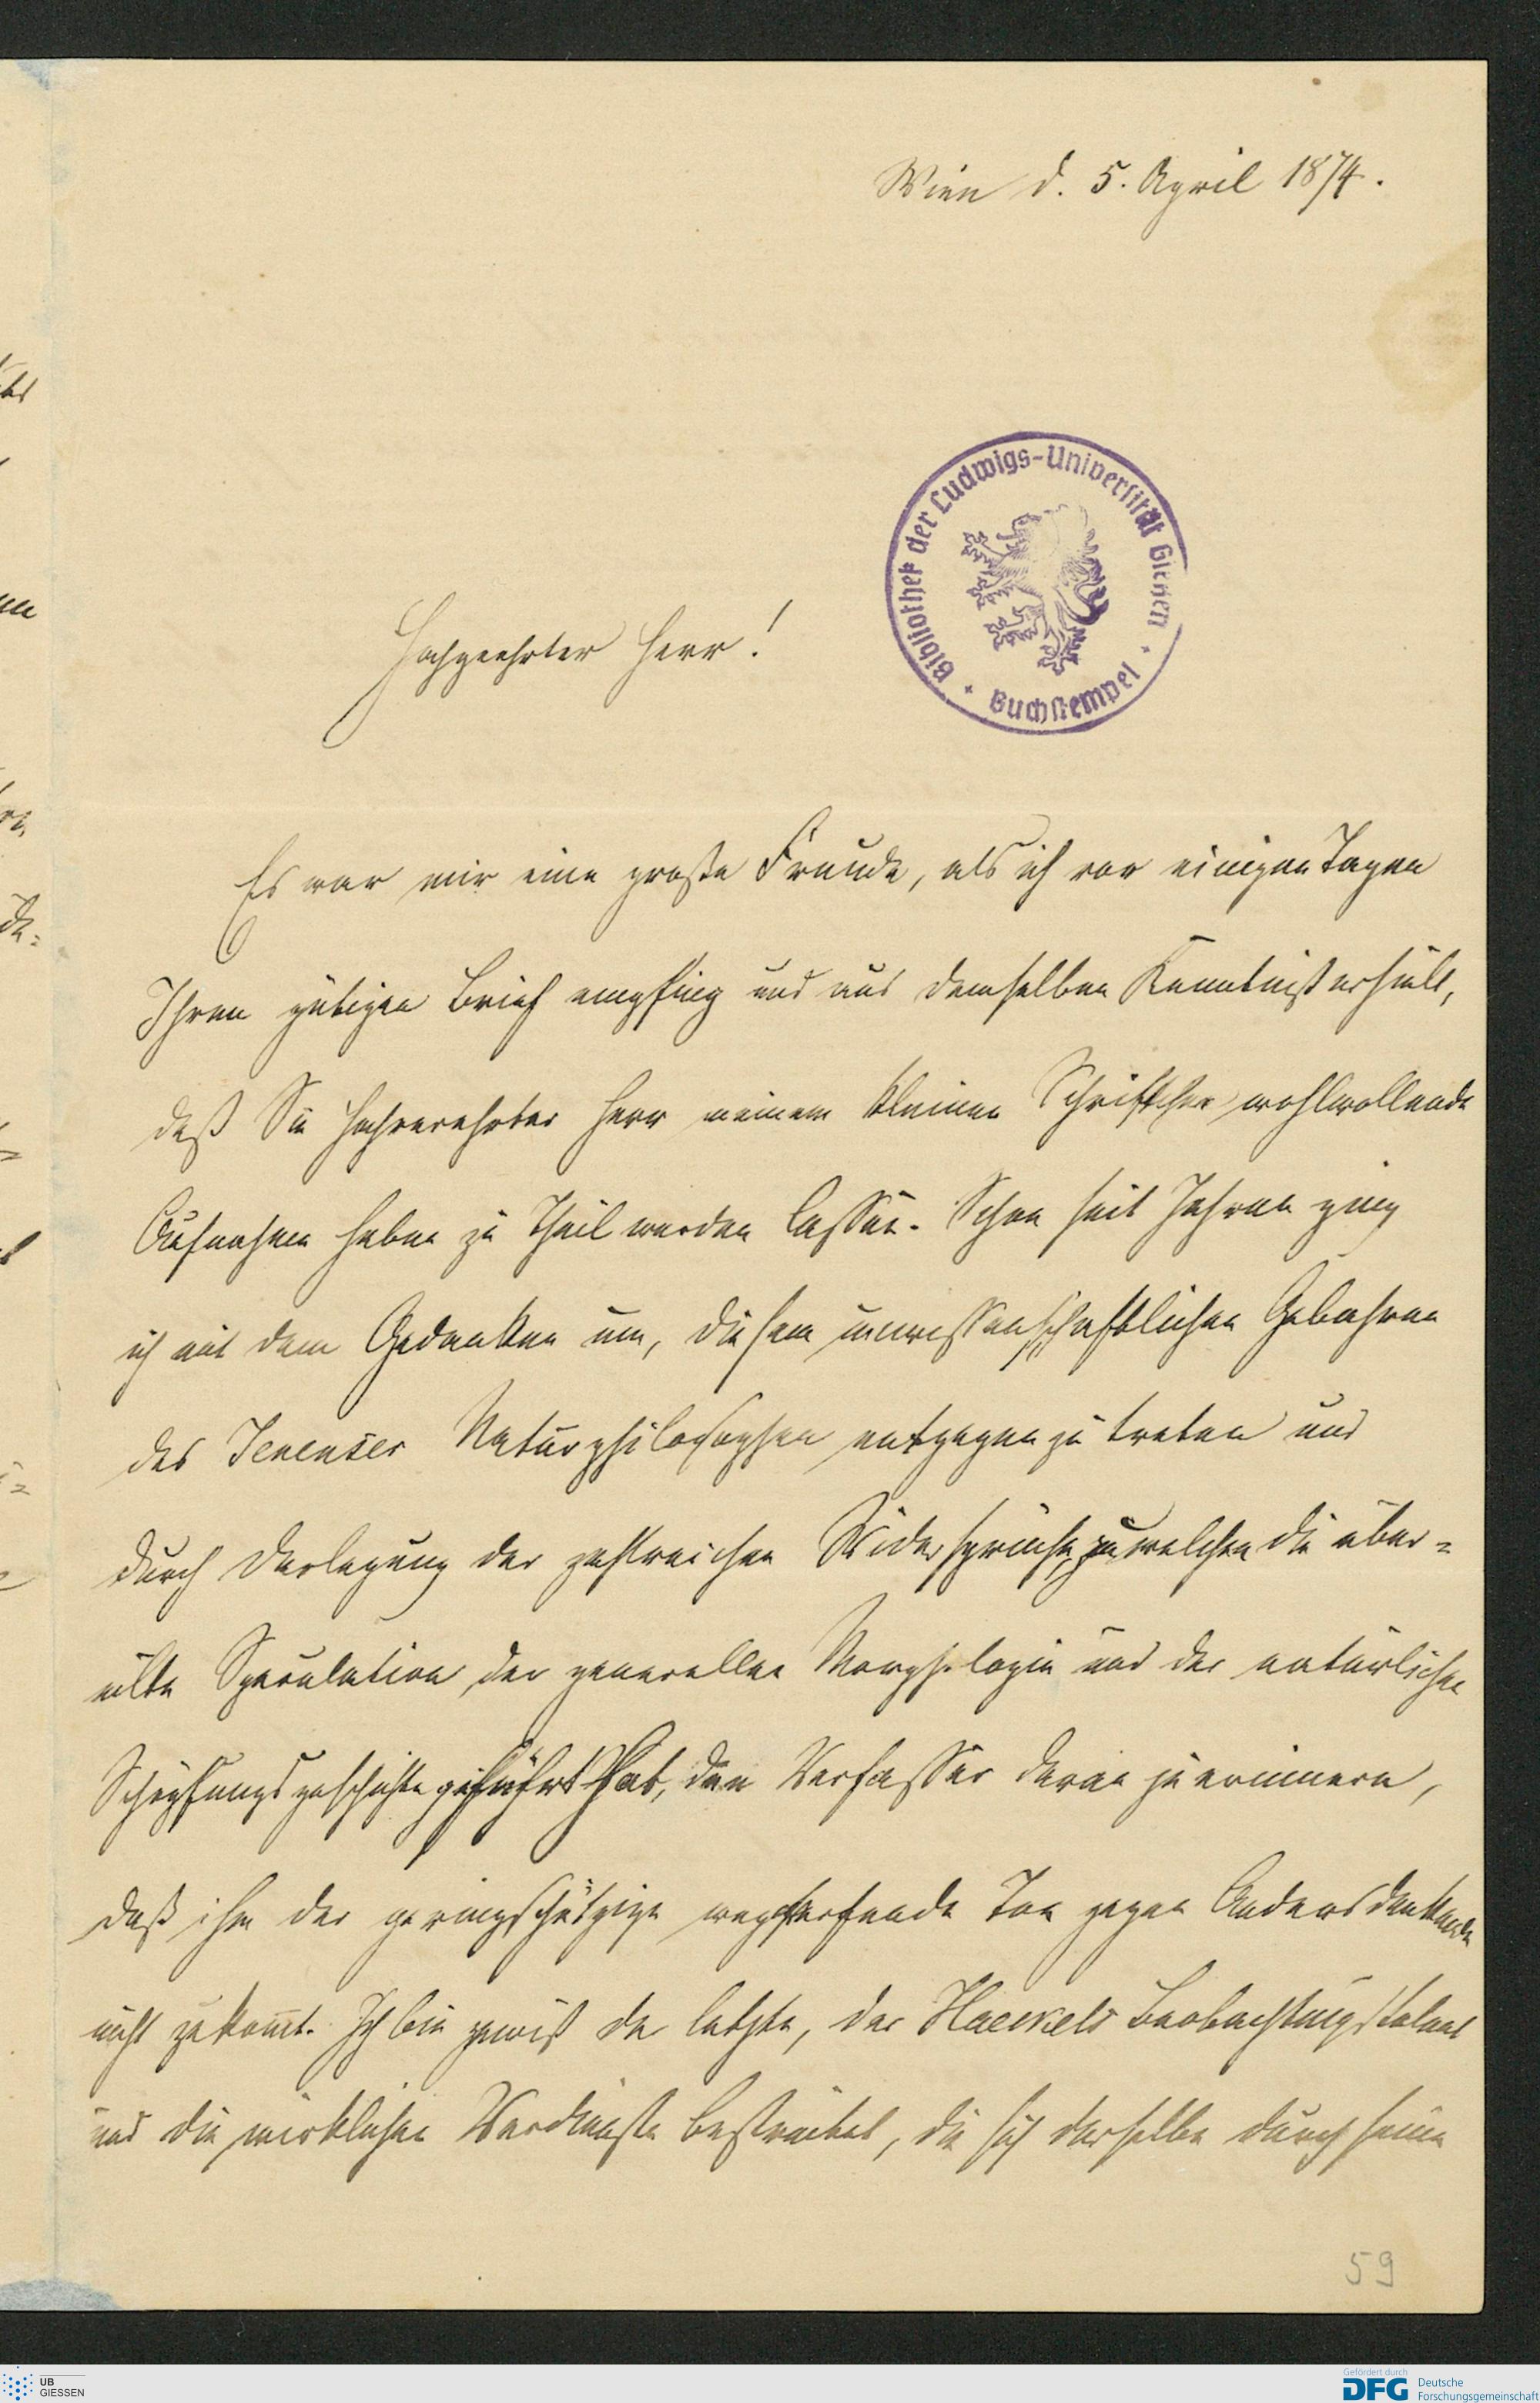 Wien d. 5. April 1874.
Bibliothek der Ludwigs-Universität Gießen
+ Buchstempel +
Hochgeehrter Herr!
Es war mir eine große Freude, als ich vor einigen Tagen
Ihren gütigen Brief empfing und aus demselben Kenntniß erhielt,
daß Sie hochverehrter Herr meinem kleinen Schriftchen wohlwollende
Aufnahme haben zu Theil werden lassen. Schon seit Jahren ging
ich mit dem Gedanken um, diesem unwissenschaftlichen Gebahren
des Jenenser Naturphilosophen entgegen zu treten und
durch Darlegung der zahlreichen Widersprüche, zu welchen die über=
eilte Speculation der generellen Morphologie und der natürlichen
Schöpfungsgeschichte geführt hat, den Verfasser daran zu erinnern,
daß ihm der geringschätzige wegwerfende Ton gegen Andersdenkende
nicht zukommt. Ich bin gewiß der letzte, der Haeckels Beobachtungstalent
und die wirklichen Verdienste bestreitet, die sich derselbe durch seine
59
UB
GIESSEN
Gefördert durch
DFG Deutsche
Forschungsgemeinschaft